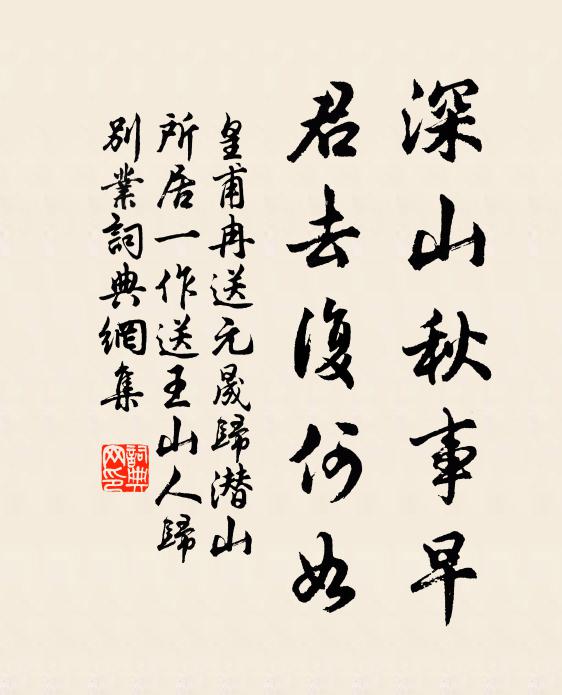 深山秋事早
君去復何如
皇甫冉送元晟歸潜山
所居一作送王山人歸
別業詞典網集
詞典
网印